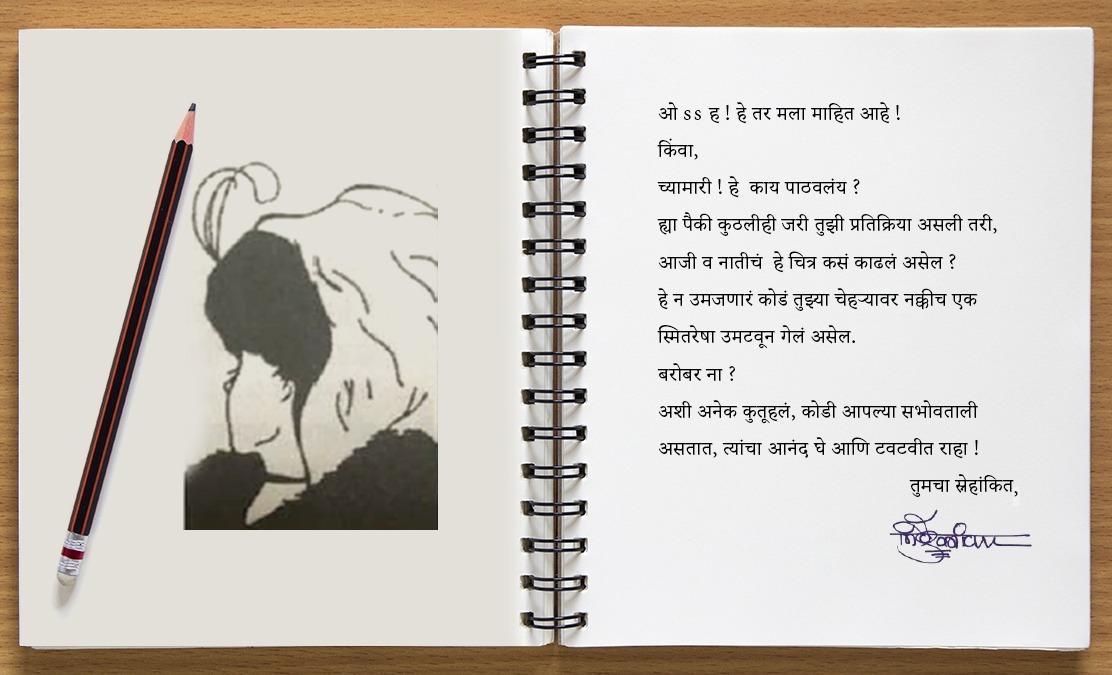 ओ s s ह ! हे तर मला माहित आहे !
किंवा,
च्यामारी ! हे काय पाठवलंय ?
ह्या पैकी कुठलीही जरी तुझी प्रतिक्रिया असली तरी,
आजी व नातीचं हे चित्र कसं काढलं असेल ?
हे न उमजणारं कोडं तुझ्या चेहऱ्यावर नक्कीच एक
स्मितरेषा उमटवून गेलं असेल.
बरोबर ना ?
अशी अनेक कुतूहलं, कोडी आपल्या सभोवताली
असतात, त्यांचा आनंद घे आणि टवटवीत राहा !
तुमचा स्नेहांकित,